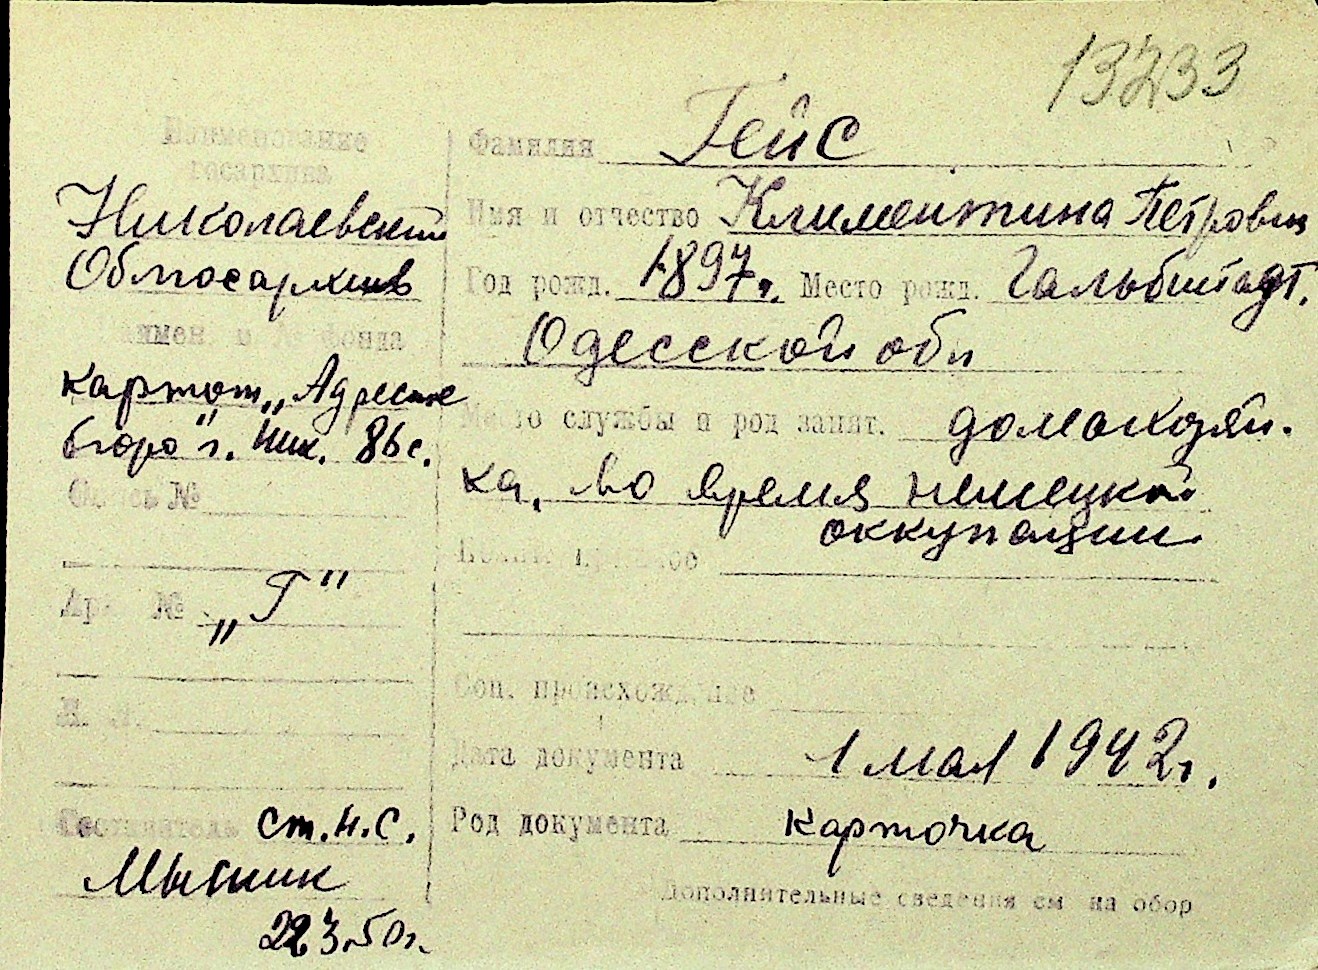 13233
Наименование
госархива
Николаевский
Облгосархив
Наимен. и № фонда
картот. „Адресное
бюро" г. Ник. 86 с.
Опись №
Арх. №
„Г"
Составитель ст.н.с.
22 3.50г.
Фамилия Гейс
Имя и отчество Климентина Петровн
Год рожд. 1897г. Место рожд. Гальбштадт.
Одесской обл
Место службы и род занят. домохозяй-
ка, во время немецкой
оккупации
Соц. происхождение
Дата документа 1 мая 1942г.
Род документа карточка
Дополнительные сведения см на обор